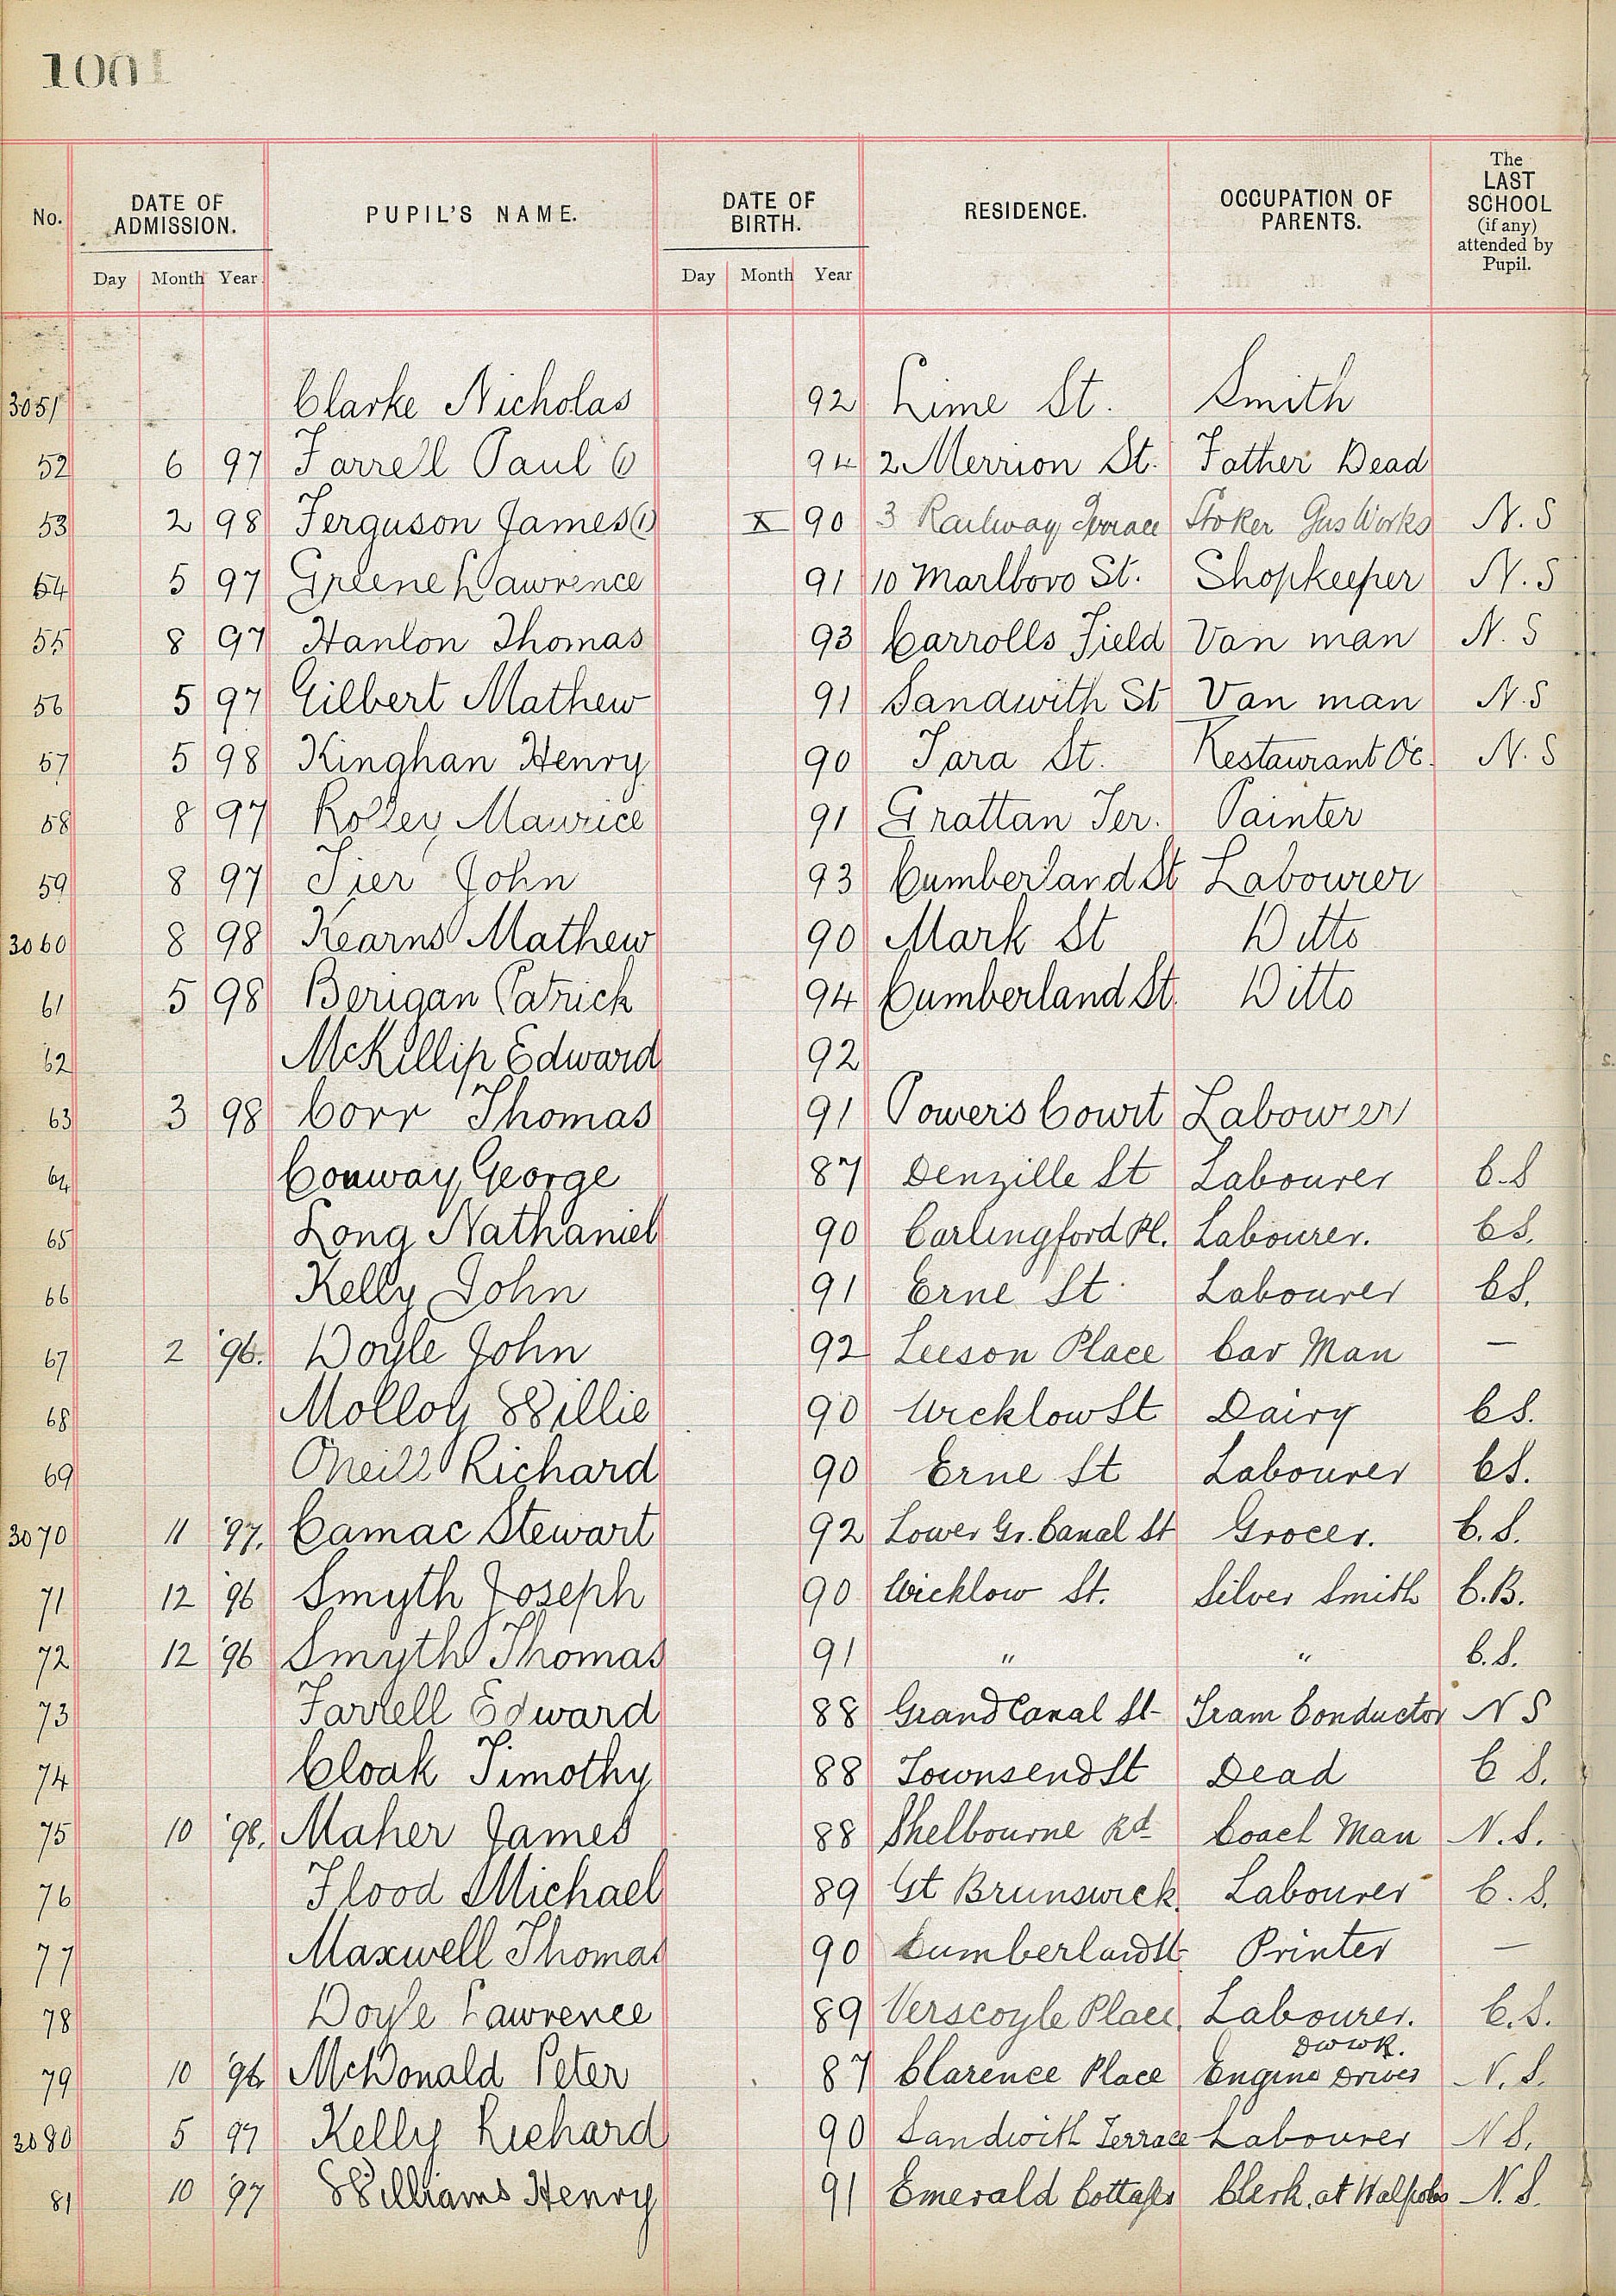 1001
No. DATE OF ADMISSION. PUPIL'S NAME. DATE OF BIRTH. RESIDENCE. OCCUPATION OF PARENTS. The LAST SCHOOL (if any) attended by Pupil.
Day Month Year Day Month Year
3051 Clarke Nicholas 92 Lime St. Smith
52 6 97 Farrell Paul (1) 94 2 Merrion St. Father Dead
53 2 98 Ferguson James (1) X 90 3 Railway Terrace Stoker Gas Works N. S
54 5 97 Greene Lawrence 91 10 Marlboro St. Shopkeeper N. S
55 8 97 Hanlon Thomas 93 Carrolls Field Van man N. S
56 5 97 Gilbert Mathew 91 Sandwith St Van man N. S
57 5 98 Kinghan Henry 90 Tara St. Restaurant &c. N. S
58 8 97 Rolley Maurice 91 Grattan Ter. Painter
59 8 97 Tier John 93 Cumberland St Labourer
3060 8 98 Kearns Mathew 90 Mark St Ditto
61 5 98 Berigan Patrick 94 Cumberland St. Ditto
62 McKillip Edward 92
63 3 98 Corr Thomas 91 Powers Court Labourer
64 Conway George 87 Denzille St Labourer C. S
65 Long Nathaniel 90 Carlingford Pl. Labourer. C S.
66 Kelly John 91 Erne St. Labourer C S.
67 2 '96. Doyle John 92 Leeson Place Car Man —
68 Molloy Willie 90 Wicklow St Dairy C S.
69 Oneill Richard 90 Erne St Labourer C S.
3070 11 '97. Camac Stewart 92 Lower Gr. Canal St Grocer. C. S.
71 12 '96 Smyth Joseph 90 Wicklow St. Silver Smith C. B.
72 12 '96 Smyth Thomas 91 " " C. S.
73 Farrell Edward 88 Grand Canal St Tram Conductor N S
74 Cloak Timothy 88 Townsend St Dead C S.
75 10 '98. Maher James 88 Shelbourne Rd Coach Man N. S.
76 Flood Michael 89 Gt Brunswick Labourer C. S.
77 Maxwell Thomas 90 Cumberland St Printer —
78 Doyle Lawrence 89 Verscoyle Place Labourer. C. S.
DWWR.
79 10 '96 McDonald Peter 87 Clarence Place Engine Driver N. S.
3080 5 97 Kelly Richard 90 Sandwith Terrace Labourer N S.
81 10 '97 Williams Henry 91 Emerald Cottages Clerk at Walpoles N. S.